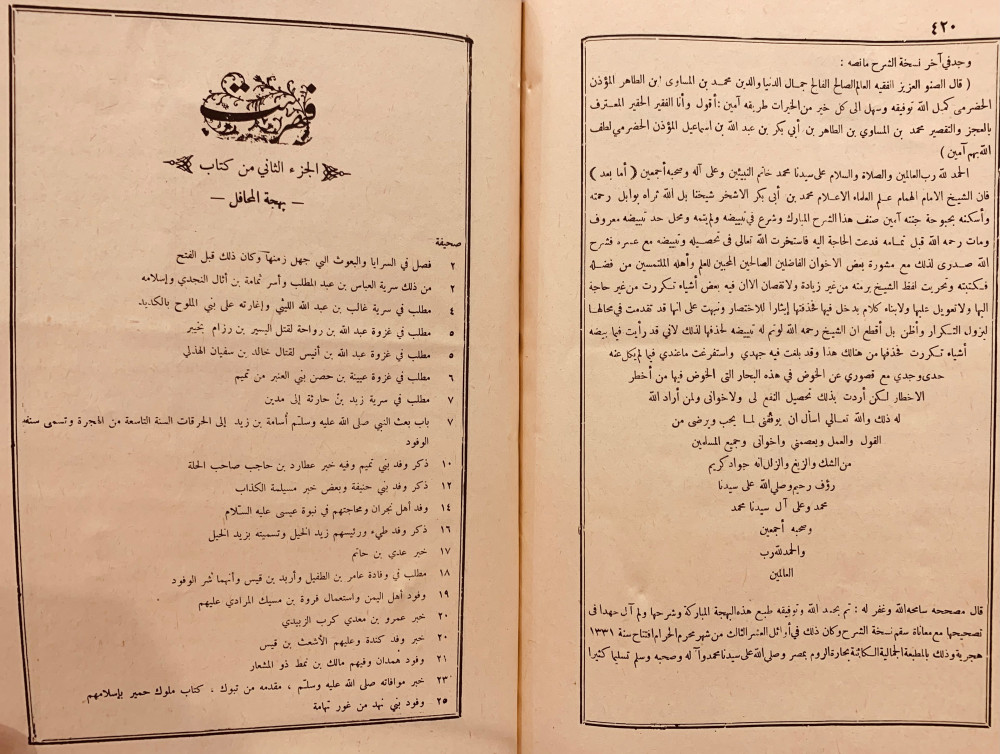 ٤٢٠
وجد في آخر نسخة الشرح ما نصه :
( قال الصنو العزيز الفقيه العالم الصالح الفالح جمال الدنيا والدين محمد بن المساوى ابن الطاهر المؤذن
الحضرمى كمل الله توفيقه وسهل الى كل خير من الخيرات طريقه آمين : أقول وأنا الفقير الحقير المعترف
بالعجز والتقصير محمد بن المساوي بن الطاهر بن أبي بكر بن عبد الله بن اسماعيل المؤذن الحضرمي لطف
الله بهم آمين )
الحمد لله رب العالمين والصلاة والسلام على سيدنا محمد خاتم النبيين وعلى آله وصحبه أجمعين ( أما بعد )
فان الشيخ الامام الهمام علم العلماء الاعلام محمد بن أبي بكر الاشخر شيخنا بل الله ثراه بوابل رحمته
وأسكنه بحبوحة جنته آمين صنف هذا الشرح المبارك وشرع في تبييضه ولم يتمه ومحل حد تبييضه معروف
ومات رحمه الله قبل تمامه فدعت الحاجة اليه فاستخرت الله تعالى فى تحصيله وتبييضه مع عسره فشرح
الله صدرى لذلك مع مشورة بعض الاخوان الفاضلين الصالحين المحبين للعلم وأهله الملتمسين من فضله
فكتبته وتحريت لفظ الشيخ برمته من غير زيادة ولا نقصان الا ان فيه بعض أشياء تكررت من غير حاجة
اليها ولا تعويل عليها ولا بناء كلام يدخل فيها فحذفتها إيثارا للاختصار ونبهت على أنها قد تقدمت في محالها
ليزول التكرار وأظن بل أقطع ان الشيخ رحمه الله لو تم له تبييضه لحذفها لذلك لاني قد رأيت فيما بيضه
أشياء تكررت فحذفها من هنالك هذا وقد بلغت فيه جهدي واستفرغت ما عندي فيما لم يكل عنه
حدى وجدي مع قصوري عن الخوض في هذه البحار التى الخوض فيها من أخطر
الاخطار لكن أردت بذلك تحصيل النفع لى ولاخوانى ولمن أراد الله
له ذلك والله تعالي اسأل ان يوفقنى لما يحب ويرضى من
القول والعمل ويعصمني واخواني وجميع المسلمين
من الشك والزيغ والزلل انه جواد كريم
رؤف رحيم وصلي الله على سيدنا
محمد وعلى آل سيدنا محمد
وصحبه أجمعين
والحمد لله رب
العالمين
قال مصححه سامحه الله وغفر له : تم بحمد الله وتوفيقه طبع هذه البهجة المباركة وشرحها ولم آل جهدا فى
تصحيحها مع معاناة سقم نسخة الشرح وكان ذلك في أوائل العشر الثالث من شهر محرم الحرام افتتاح سنة ١٣٣١
هجرية وذلك بالمطبعة الجمالية الكائنة بحارة الروم بمصر وصلي الله على سيدنا محمد وآله وصحبه وسلم تسليما كثيرا
فهرست
الجزء الثاني من كتاب
— بهجة المحافل —
صحيفة
٢ فصل في السرايا والبعوث التي جهل زمنها وكان ذلك قبل الفتح
٢ من ذلك سرية العباس بن عبد المطلب وأسر ثمامة بن أثال النجدي وإسلامه
٤ مطلب في سرية غالب بن عبد الله الليثي وإغارته على بني الملوح بالكديد
٥ مطلب في غزوة عبد الله بن رواحة لقتل اليسير بن رزام بخيبر
٥ مطلب في غزوة عبد الله بن أنيس لقتال خالد بن سفيان الهذلي
٦ مطلب في غزوة عيينة بن حصن بني العنبر من تميم
٧ مطلب في سرية زيد بن حارثة إلى مدين
٧ باب بعث النبي صلى الله عليه وسلّم أسامة بن زيد إلى الحرقات السنة التاسعة من الهجرة وتسمى سنة
الوفود
١٠ ذكر وفد بني تميم وفيه خبر عطارد بن حاجب صاحب الحلة
١٢ ذكر وفد بني حنيفة وبعض خبر مسيلمة الكذاب
١٤ وفد أهل نجران ومحاجتهم في نبوة عيسى عليه السّلام
١٦ ذكر وفد طيء ورئيسهم زيد الخيل وتسميته بزيد الخيل
١٧ خبر عدي بن حاتم
١٨ مطلب في وفادة عامر بن الطفيل وأربد بن قيس وأنهما شر الوفود
١٩ وفود أهل اليمن واستعمال فروة بن مسيك المرادي عليهم
٢٠ خبر عمرو بن معدي كرب الزبيدي
٢٠ خبر وفد كندة وعليهم الأشعث بن قيس
٢١ وفود همدان وفيهم مالك بن نمط ذو المشعار
٢٣ خبر موافاته صلى الله عليه وسلّم ، مقدمه من تبوك ، كتاب ملوك حمير بإسلامهم
٢٥ وفود بني نهد من غور تهامة